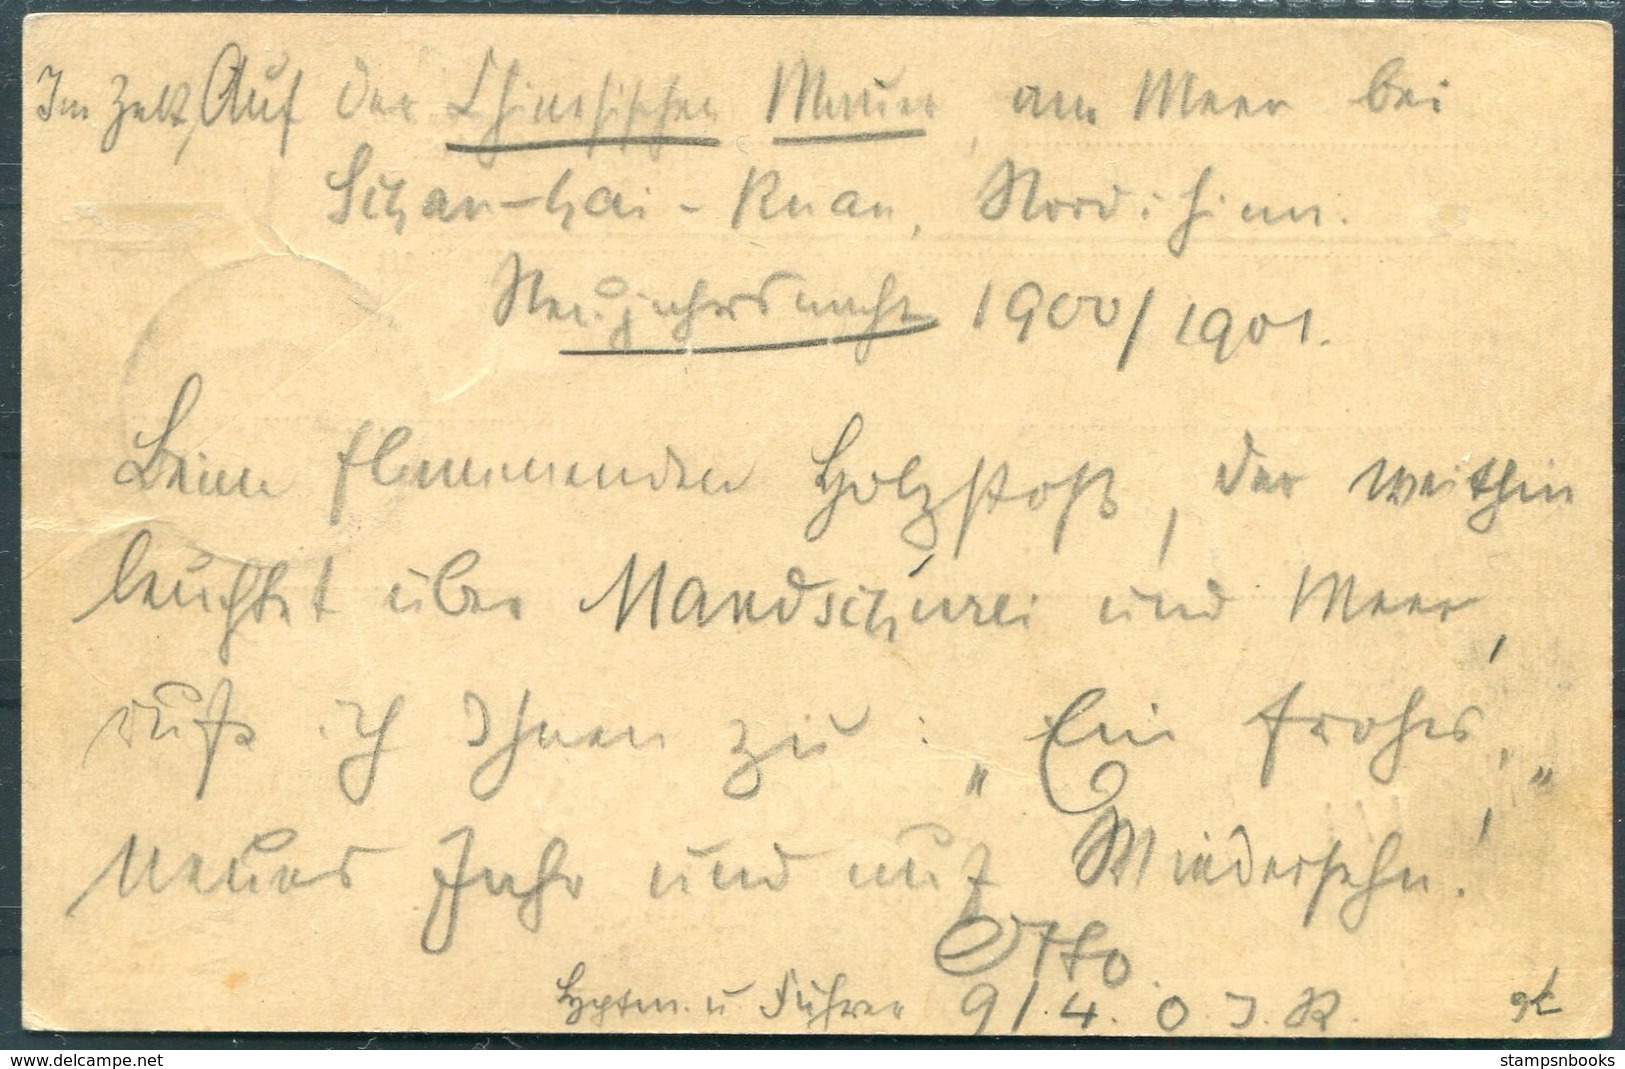 Im Zelt, Auf der Chinesischen Mauer, am Meer bei
Schan-hai-Kuan, Nordchina.
Neujahrsnacht 1900/1901.
Beim flammenden Holzstoß, der weithin
leuchtet über Mandschurei und Meer,
rufe ich Ihnen zu: „Ein frohes,
neues Jahr und auf Wiedersehn!"
Otto
Hptm. u Führer 9/.4. O. I. R.
stampsnbooks